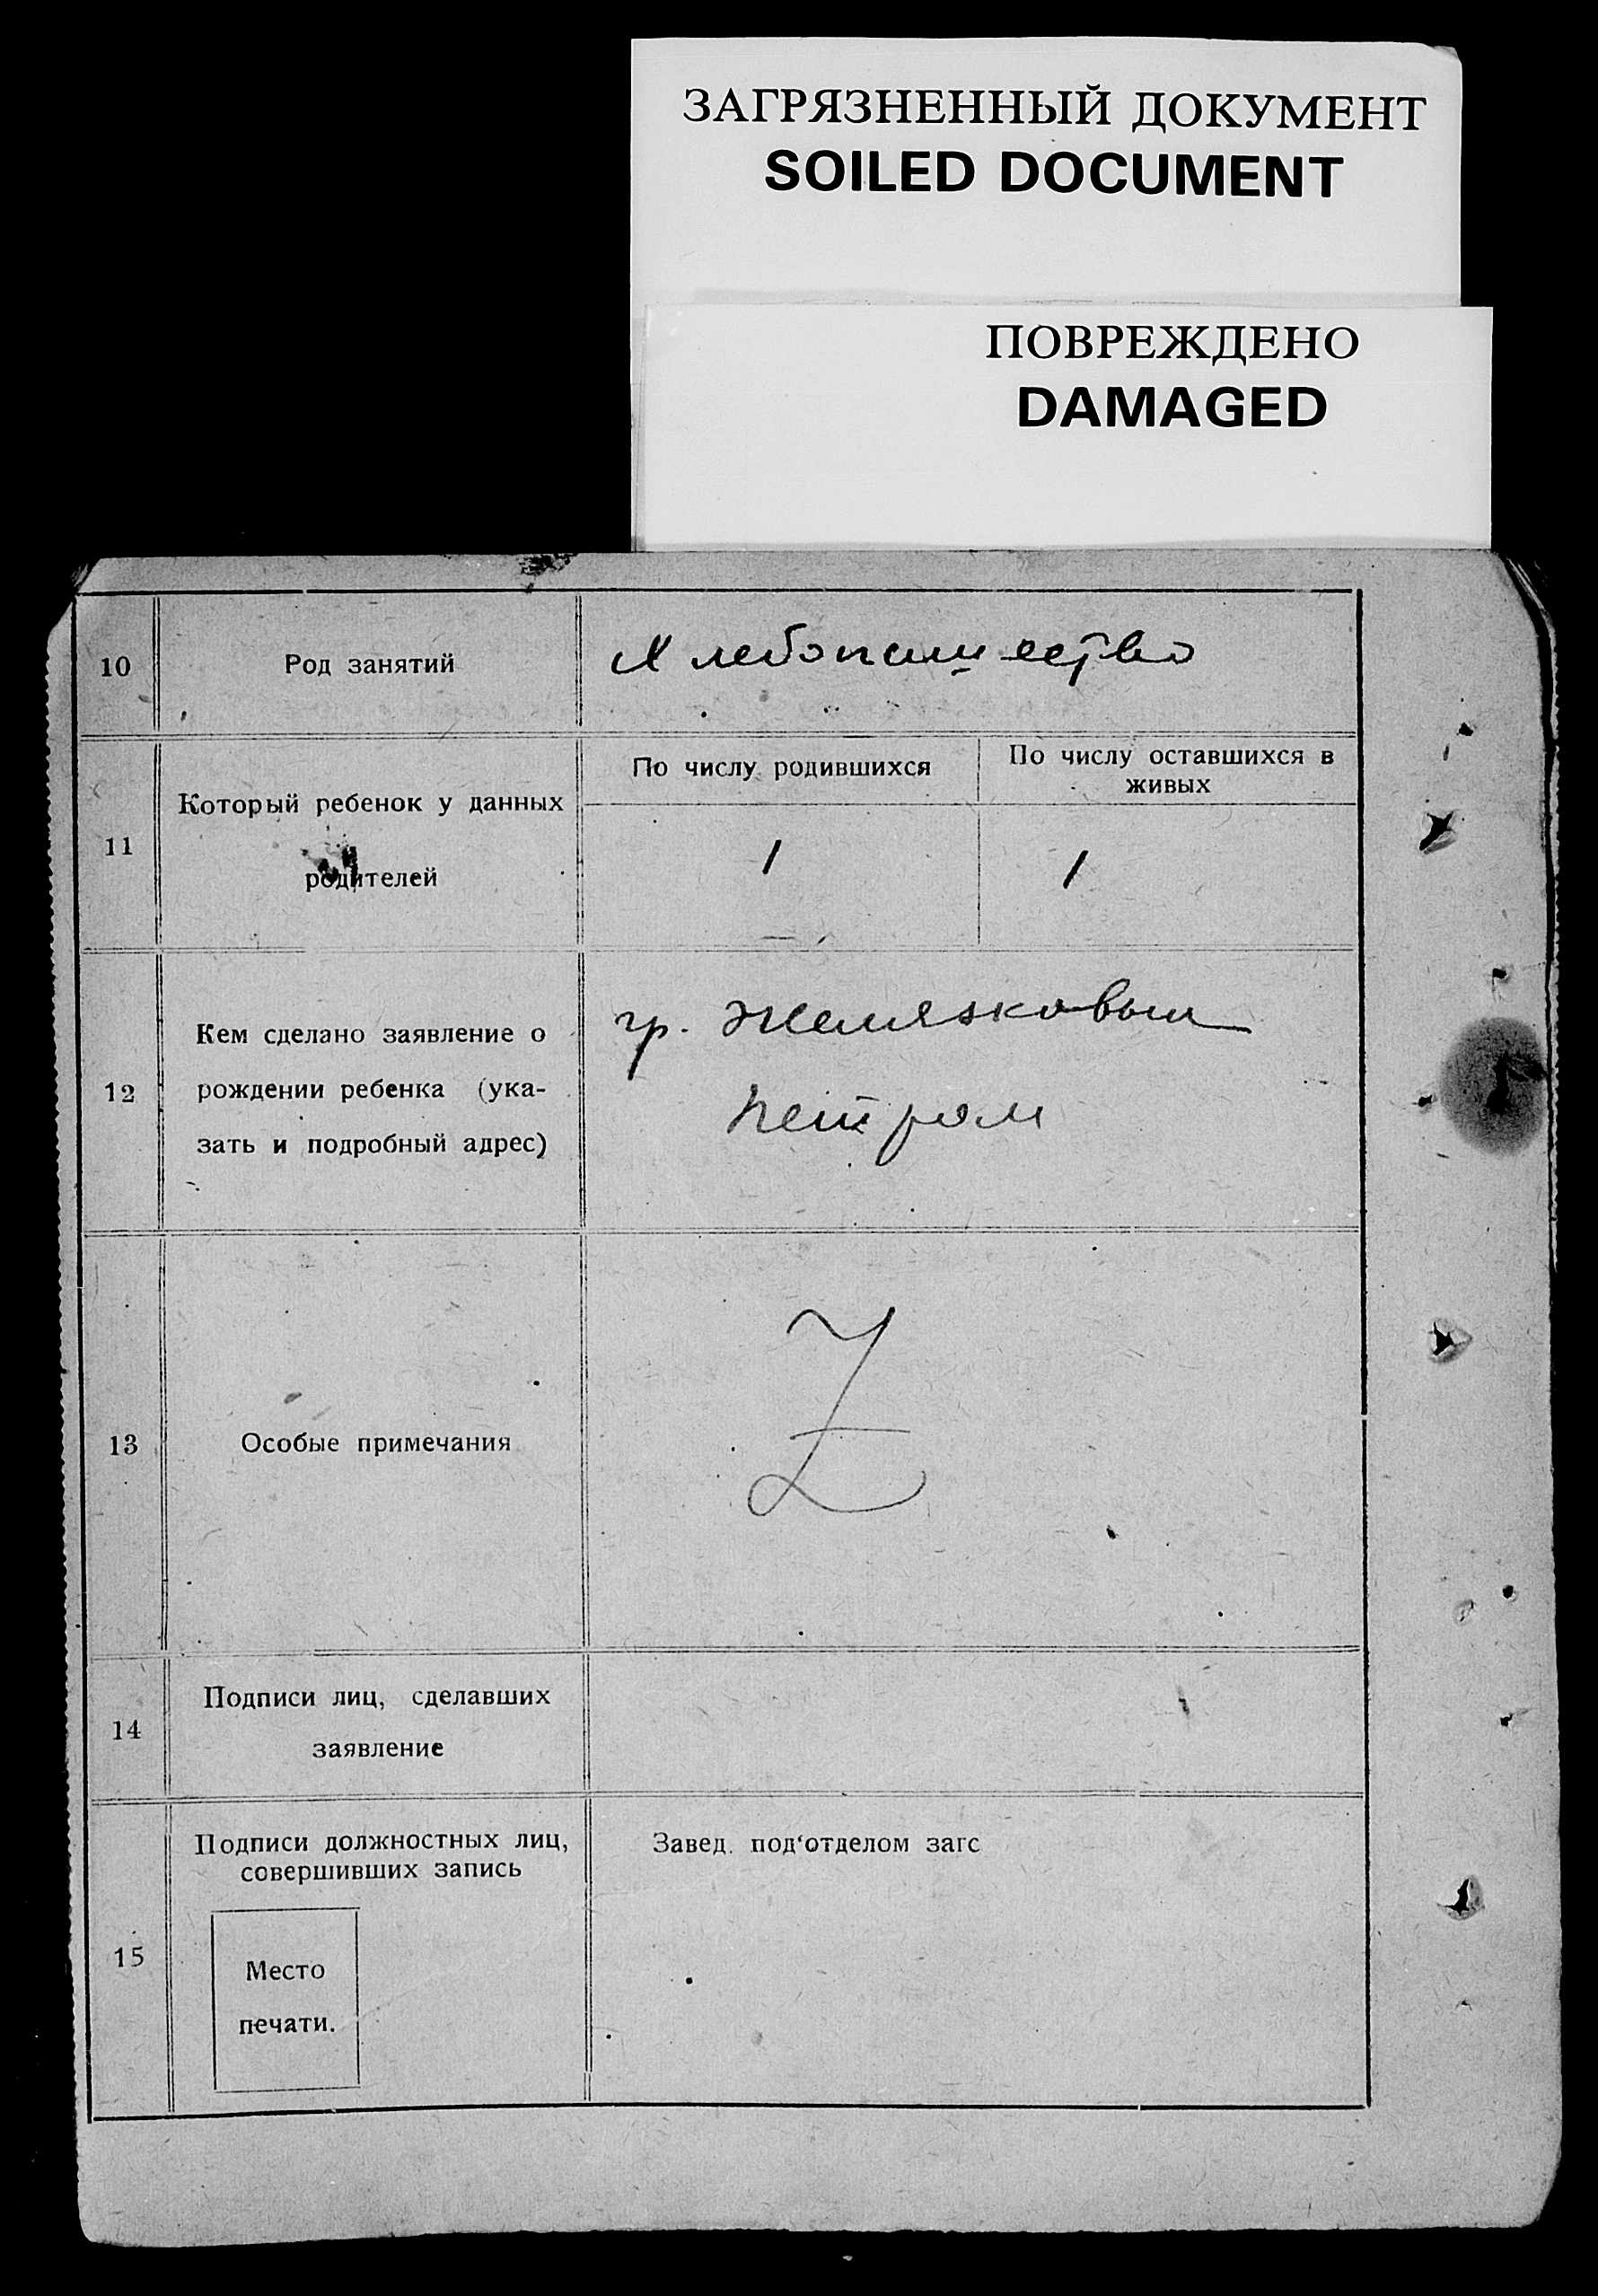 ЗАГРЯЗНЕННЫЙ ДОКУМЕНТ
SOILED DOCUMENT
ПОВРЕЖДЕНО
DAMAGED
10
Род занятий
Хлебопашество
11
Который ребенок у данных
родителей
По числу родившихся
По числу оставшихся в
живых
1
1
12
Кем сделано заявление о
рождении ребенка (ука-
зать и подробный адрес)
гр. Желязковым
Петром
13
Особые примечания
Z
14
Подписи лиц, сделавших
заявление
15
Подписи должностных лиц,
совершивших запись
Место
печати.
Завед. под'отделом загс